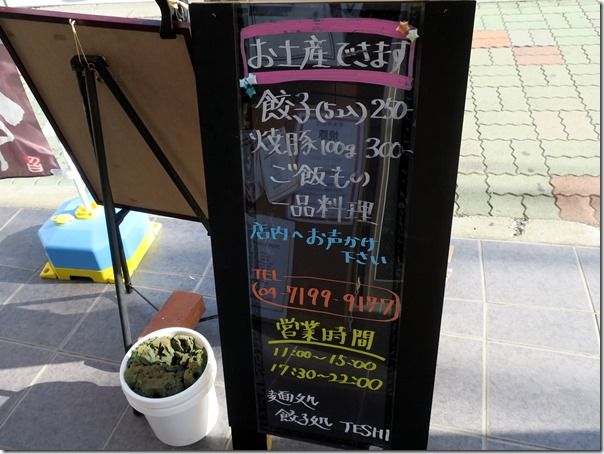 お土産できます
餃子(5コ入) 250-
焼豚100g 300-
ご飯もの
一品料理
店内へお声かけ
下さい
TEL
04-7199-9177
営業時間
11:00〜15:00
17:30〜22:00
麺処
餃子処 TESHI